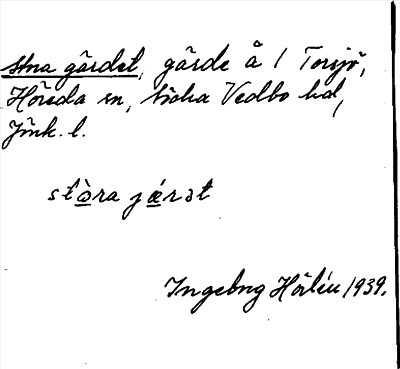 stora gärdet, gärde å 1 Torsjö,
Höreda sn, Södra Vedbo hd,
Jönk. l.
stòra jǽrət
Ingebrig Hörlén 1939.